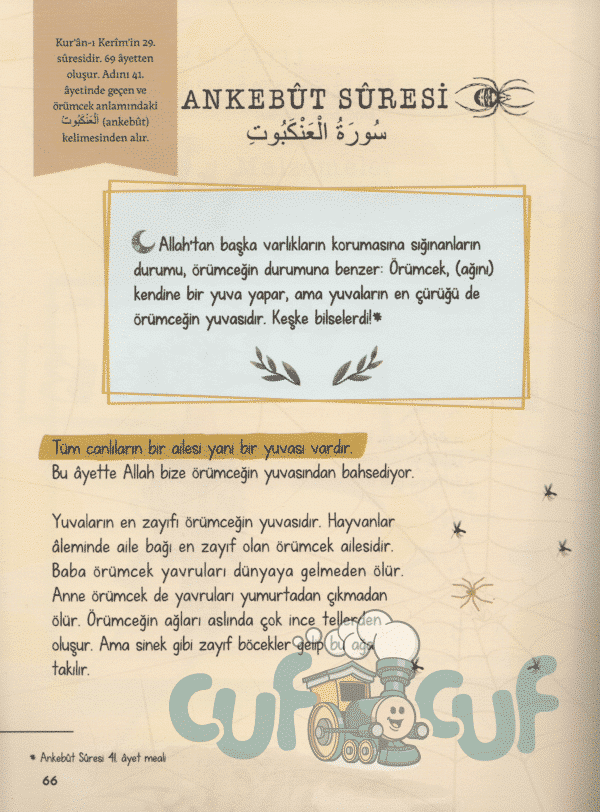 Kur'ân-ı Kerîm'in 29.
sûresidir. 69 âyetten
oluşur. Adını 41.
âyetinde geçen ve
örümcek anlamındaki
اَلْعَنْكَبُوتُ (ankebût)
kelimesinden alır.
ANKEBÛT SÛRESİ
سُورَةُ الْعَنْكَبُوتِ
Allah'tan başka varlıkların korumasına sığınanların
durumu, örümceğin durumuna benzer: Örümcek, (ağını)
kendine bir yuva yapar, ama yuvaların en çürüğü de
örümceğin yuvasıdır. Keşke bilselerdi!*
Tüm canlıların bir ailesi yani bir yuvası vardır.
Bu âyette Allah bize örümceğin yuvasından bahsediyor.
Yuvaların en zayıfı örümceğin yuvasıdır. Hayvanlar
âleminde aile bağı en zayıf olan örümcek ailesidir.
Baba örümcek yavruları dünyaya gelmeden ölür.
Anne örümcek de yavruları yumurtadan çıkmadan
ölür. Örümceğin ağları aslında çok ince tellerden
oluşur. Ama sinek gibi zayıf böcekler gelip bu ağa
takılır.
cuf cuf
* Ankebût Sûresi 41. âyet meali
66